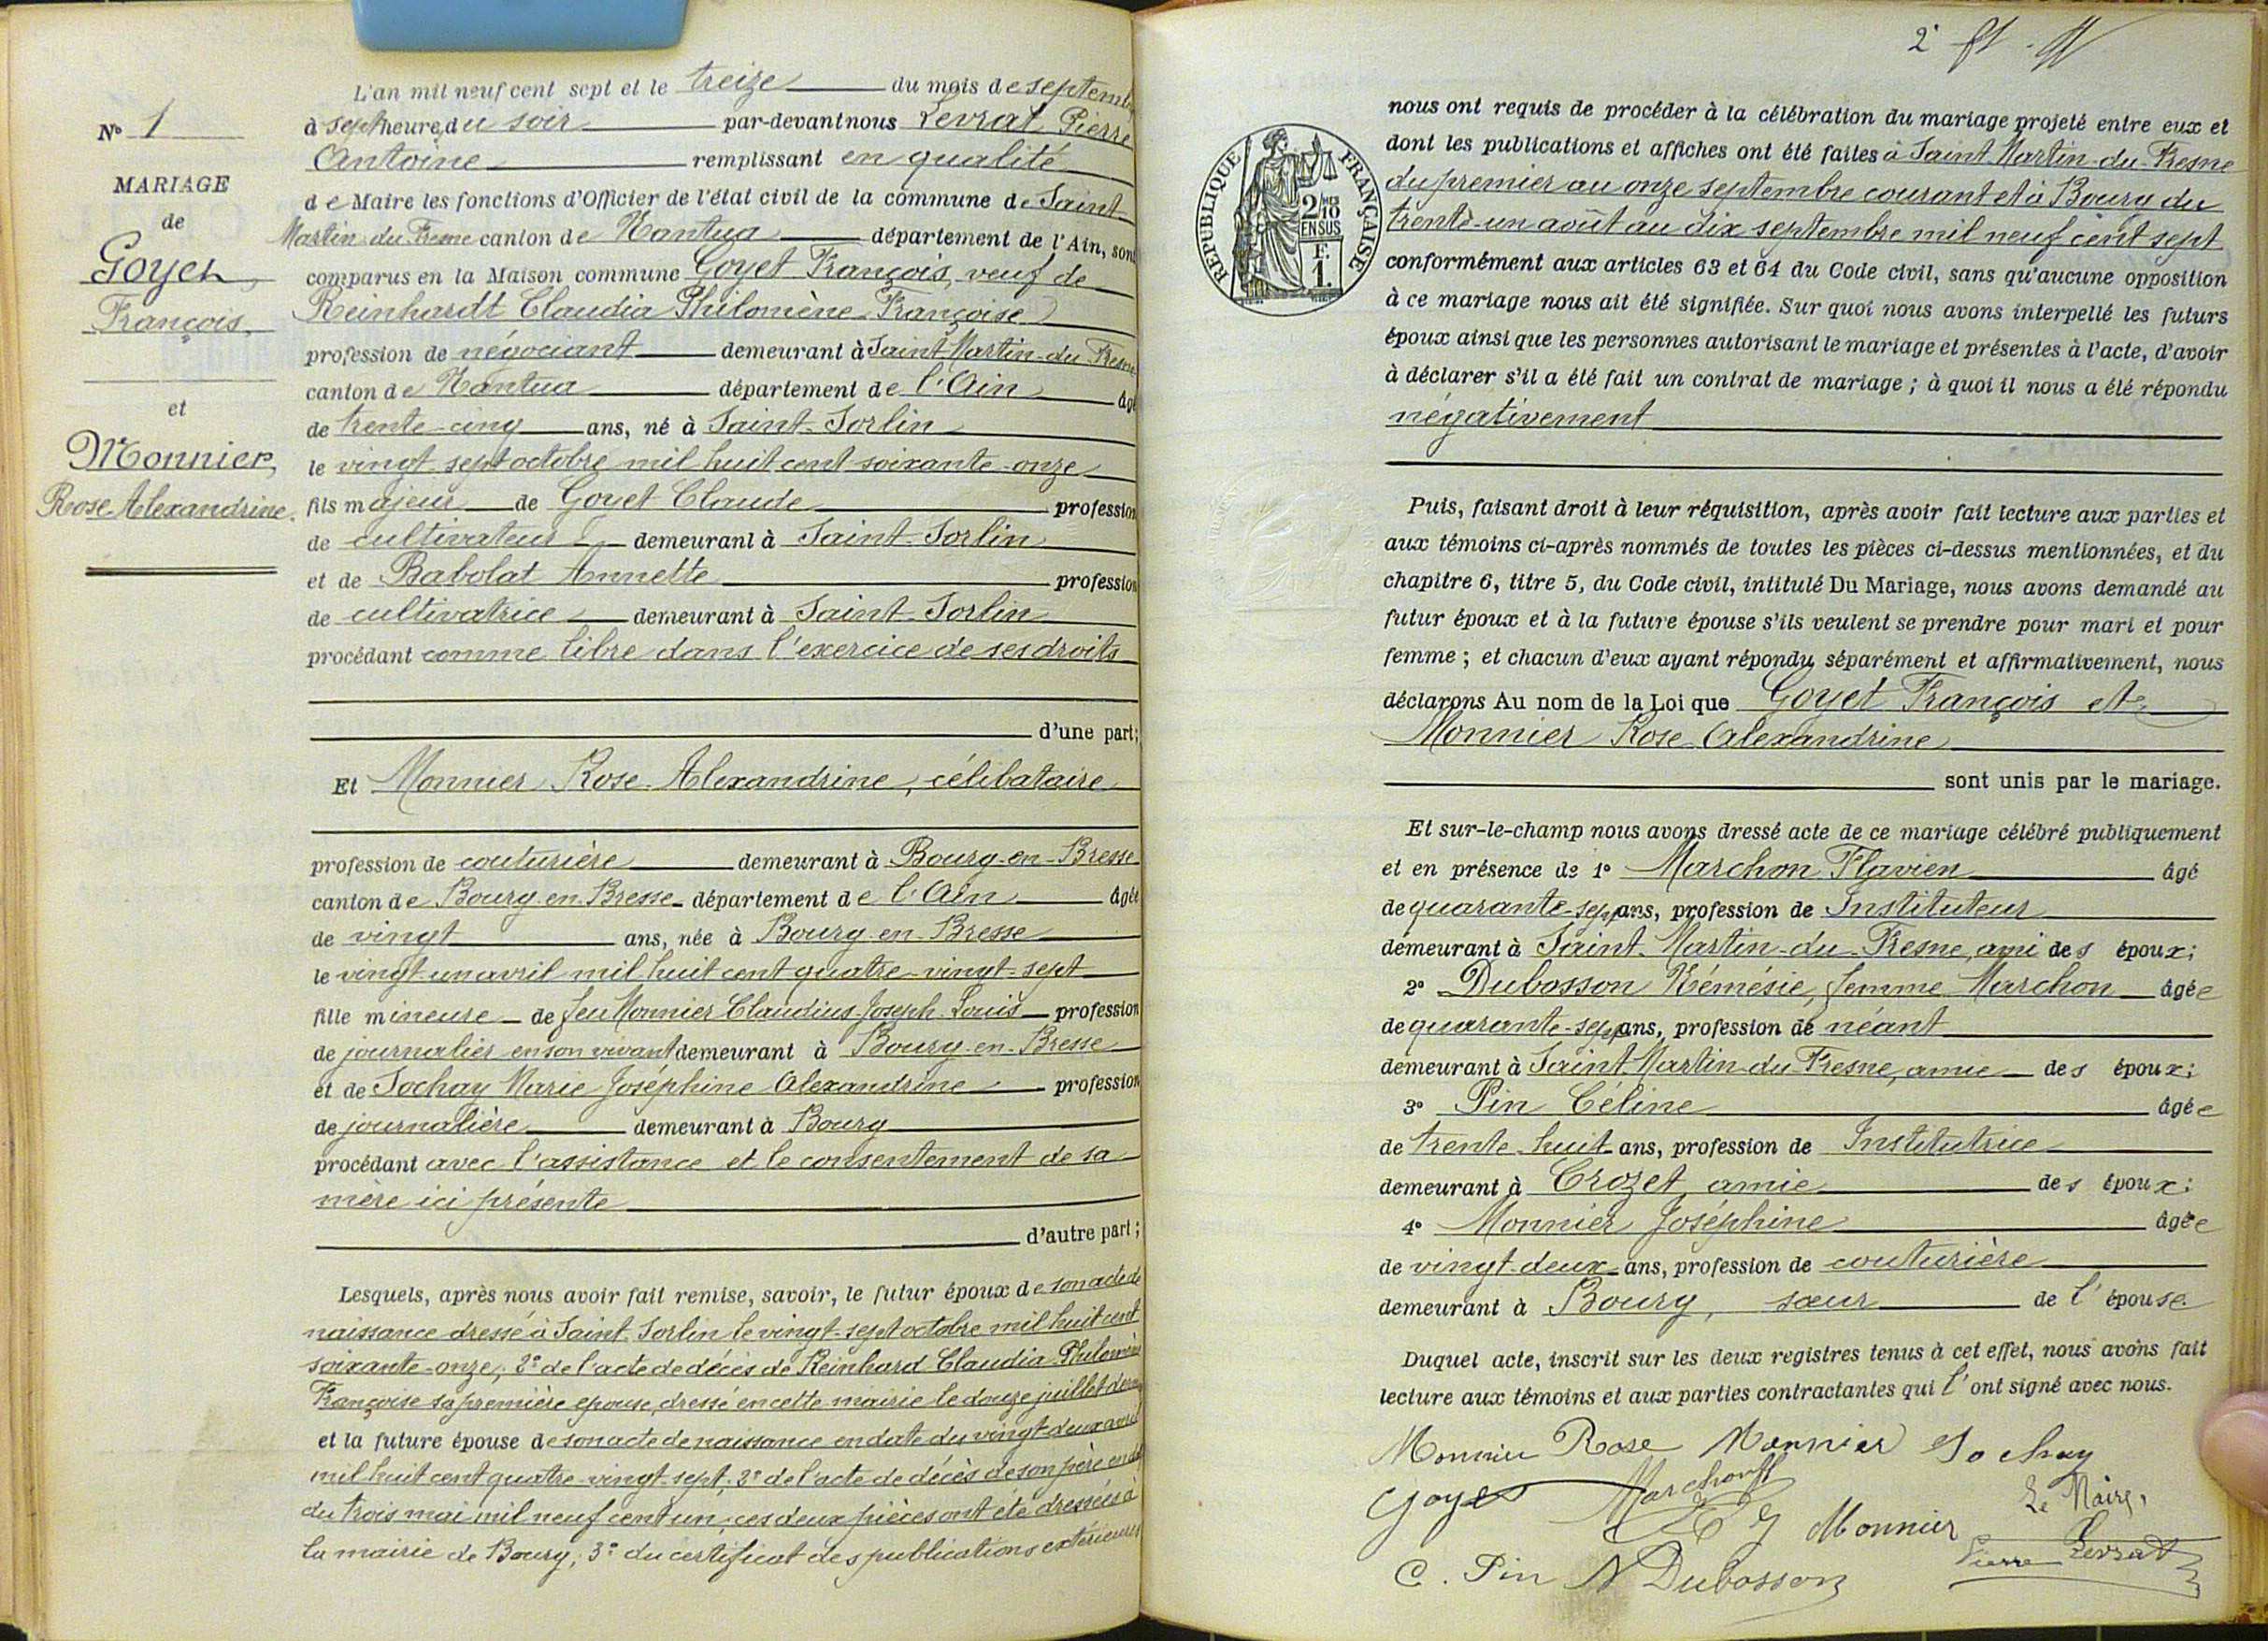 N° 1
MARIAGE
de
Goyet,
François,
et
Monnier,
Rose Alexandrine.
L'an mil neuf cent sept et le treize du mois de septembre
à sept heure du soir par-devant nous Levrat Pierre
Antoine remplissant en qualité
de Maire les fonctions d'Officier de l'état civil de la commune de Saint-
Martin-du-Fresne canton de Nantua département de l'Ain, sont
comparus en la Maison commune Goyet François, veuf de
Reinhardt Claudia Philomène Françoise
profession de négociant demeurant à Saint Martin-du-Fresne
canton de Nantua département de l'Ain âgé
de trente-cinq ans, né à Saint-Sorlin
le vingt sept octobre mil huit cent soixante-onze
fils majeur de Goyet Claude profession
de cultivateur demeurant à Saint-Sorlin
et de Babolat Annette profession
de cultivatrice demeurant à Saint-Sorlin
procédant comme libre dans l'exercice de ses droits
d'une part;
Et Monnier Rose Alexandrine, célibataire
profession de couturière demeurant à Bourg-en-Bresse
canton de Bourg-en-Bresse département de l'Ain âgée
de vingt ans, née à Bourg-en-Bresse
le vingt-un avril mil huit cent quatre-vingt-sept
fille mineure de feu Monnier Claudius Joseph Louis profession
de journalier en son vivant demeurant à Bourg-en-Bresse
et de Sochay Marie Joséphine Alexandrine profession
de journalière demeurant à Bourg
procédant avec l'assistance et le consentement de sa
mère ici présente
d'autre part;
Lesquels, après nous avoir fait remise, savoir, le futur époux de son acte de
naissance dressé à Saint-Sorlin le vingt-sept octobre mil huit cent
soixante-onze; 2° de l'acte de décès de Reinhard Claudia Philomène
Françoise sa première épouse, dressé en cette mairie le douze juillet
et la future épouse de son acte de naissance en date du vingt deux avril
mil huit cent quatre-vingt-sept; 2° de l'acte de décès de son père en
du trois mai mil neuf cent un; ces deux pièces ont été dressées à
la mairie de Bourg; 3° du certificat des publications extérieures
2°
RÉPUBLIQUE FRANÇAISE
2/10 MES
EN SUS
F.
1.
nous ont requis de procéder à la célébration du mariage projeté entre eux et
dont les publications et affiches ont été faites à Saint Martin-du-Fresne
du premier au onze septembre courant et à Bourg du
trente-un août au dix septembre mil neuf cent sept
conformément aux articles 63 et 64 du Code civil, sans qu'aucune opposition
à ce mariage nous ait été signifiée. Sur quoi nous avons interpellé les futurs
époux ainsi que les personnes autorisant le mariage et présentes à l'acte, d'avoir
à déclarer s'il a été fait un contrat de mariage; à quoi il nous a été répondu
négativement
Puis, faisant droit à leur réquisition, après avoir fait lecture aux parties et
aux témoins ci-après nommés de toutes les pièces ci-dessus mentionnées, et du
chapitre 6, titre 5, du Code civil, intitulé Du Mariage, nous avons demandé au
futur époux et à la future épouse s'ils veulent se prendre pour mari et pour
femme; et chacun d'eux ayant répondu séparément et affirmativement, nous
déclarons Au nom de la Loi que Goyet François et
Monnier Rose Alexandrine
sont unis par le mariage.
Et sur-le-champ nous avons dressé acte de ce mariage célébré publiquement
et en présence de 1° Marchon Flavien âgé
de quarante-sept ans, profession de Instituteur
demeurant à Saint-Martin-du-Fresne, ami des époux;
2° Dubosson Némésie, femme Marchon âgée
de quarante-sept ans, profession de néant
demeurant à Saint Martin-du-Fresne, amie des époux;
3° Pin Céline âgée
de trente-huit ans, profession de Institutrice
demeurant à Crozet amie des époux;
4° Monnier Joséphine âgée
de vingt-deux ans, profession de couturière
demeurant à Bourg, sœur de l'épouse.
Duquel acte, inscrit sur les deux registres tenus à cet effet, nous avons fait
lecture aux témoins et aux parties contractantes qui l'ont signé avec nous.
Monnier Rose Monnier Sochay
Goyet Marchon Le Maire,
J Monnier Pierre Levrat
C. Pin N Dubosson